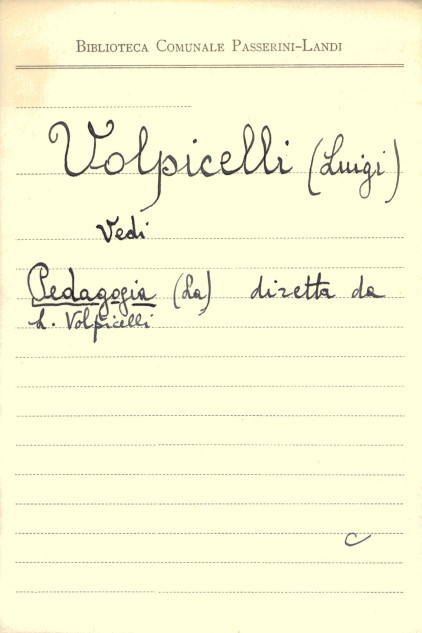 BIBLIOTECA COMUNALE PASSERINI-LANDI
Volpicelli (Luigi)
Vedi
Pedagogia (La) diretta da
L. Volpicelli
C